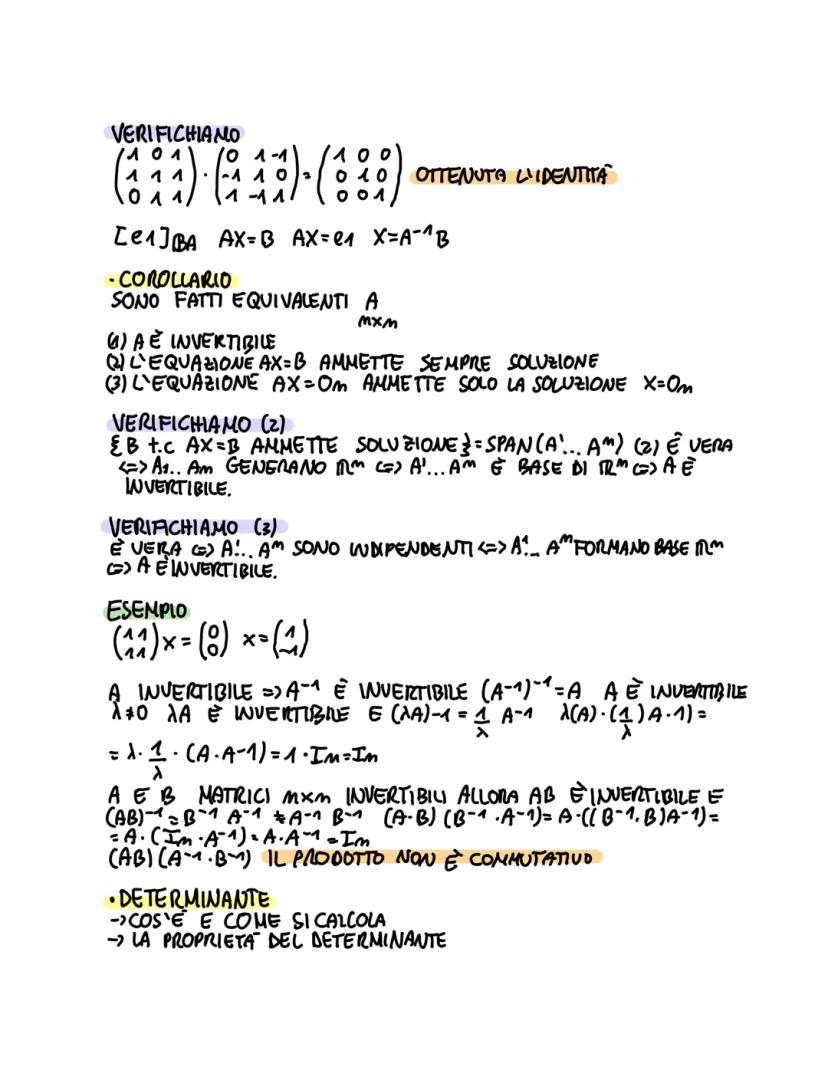 VERIFICHIAMO
(1 0 1 / 1 1 1 / 0 1 1) · (0 1 -1 / -1 1 0 / 1 -1 1) = (1 0 0 / 0 1 0 / 0 0 1) OTTENUTA L'IDENTITÀ
[e1]BA AX=B AX=e1 X=A-1B
• COROLLARIO
SONO FATTI EQUIVALENTI A
mxm
(1) A È INVERTIBILE
(2) L'EQUAZIONE AX=B AMMETTE SEMPRE SOLUZIONE
(3) L'EQUAZIONE AX=Om AMMETTE SOLO LA SOLUZIONE X=Om
VERIFICHIAMO (2)
{B t.c AX=B AMMETTE SOLUZIONE}=SPAN(A¹...Aᵐ) (2) È VERA
<=> A1.. Am GENERANO Rᵐ <=> A¹...Aᵐ È BASE DI Rᵐ <=> A È
INVERTIBILE.
VERIFICHIAMO (3)
È VERA <=> A¹... Aᵐ SONO INDIPENDENTI <=> A¹... Aᵐ FORMANO BASE Rᵐ
<=> A È INVERTIBILE.
ESEMPIO
(1 1 / 1 1) x = (0 / 0) x = (1 / -1)
A INVERTIBILE => A-1 È INVERTIBILE (A-1)-1=A A È INVERTIBILE
λ≠0 λA È INVERTIBILE E (λA)-1 = 1/λ A-1 λ(A)·(1/λ)A·1)=
= λ· 1/λ · (A·A-1)=1·Im=Im
A E B MATRICI mxm INVERTIBILI ALLORA AB È INVERTIBILE E
(AB)-1 = B-1 A-1 ≠ A-1 B-1 (A·B) (B-1·A-1)= A·((B-1.B)A-1)=
= A·(Im·A-1)=A·A-1=Im
(AB)(A-1·B-1) IL PRODOTTO NON È COMMUTATIVO
• DETERMINANTE
-> COS'È E COME SI CALCOLA
-> LA PROPRIETÀ DEL DETERMINANTE